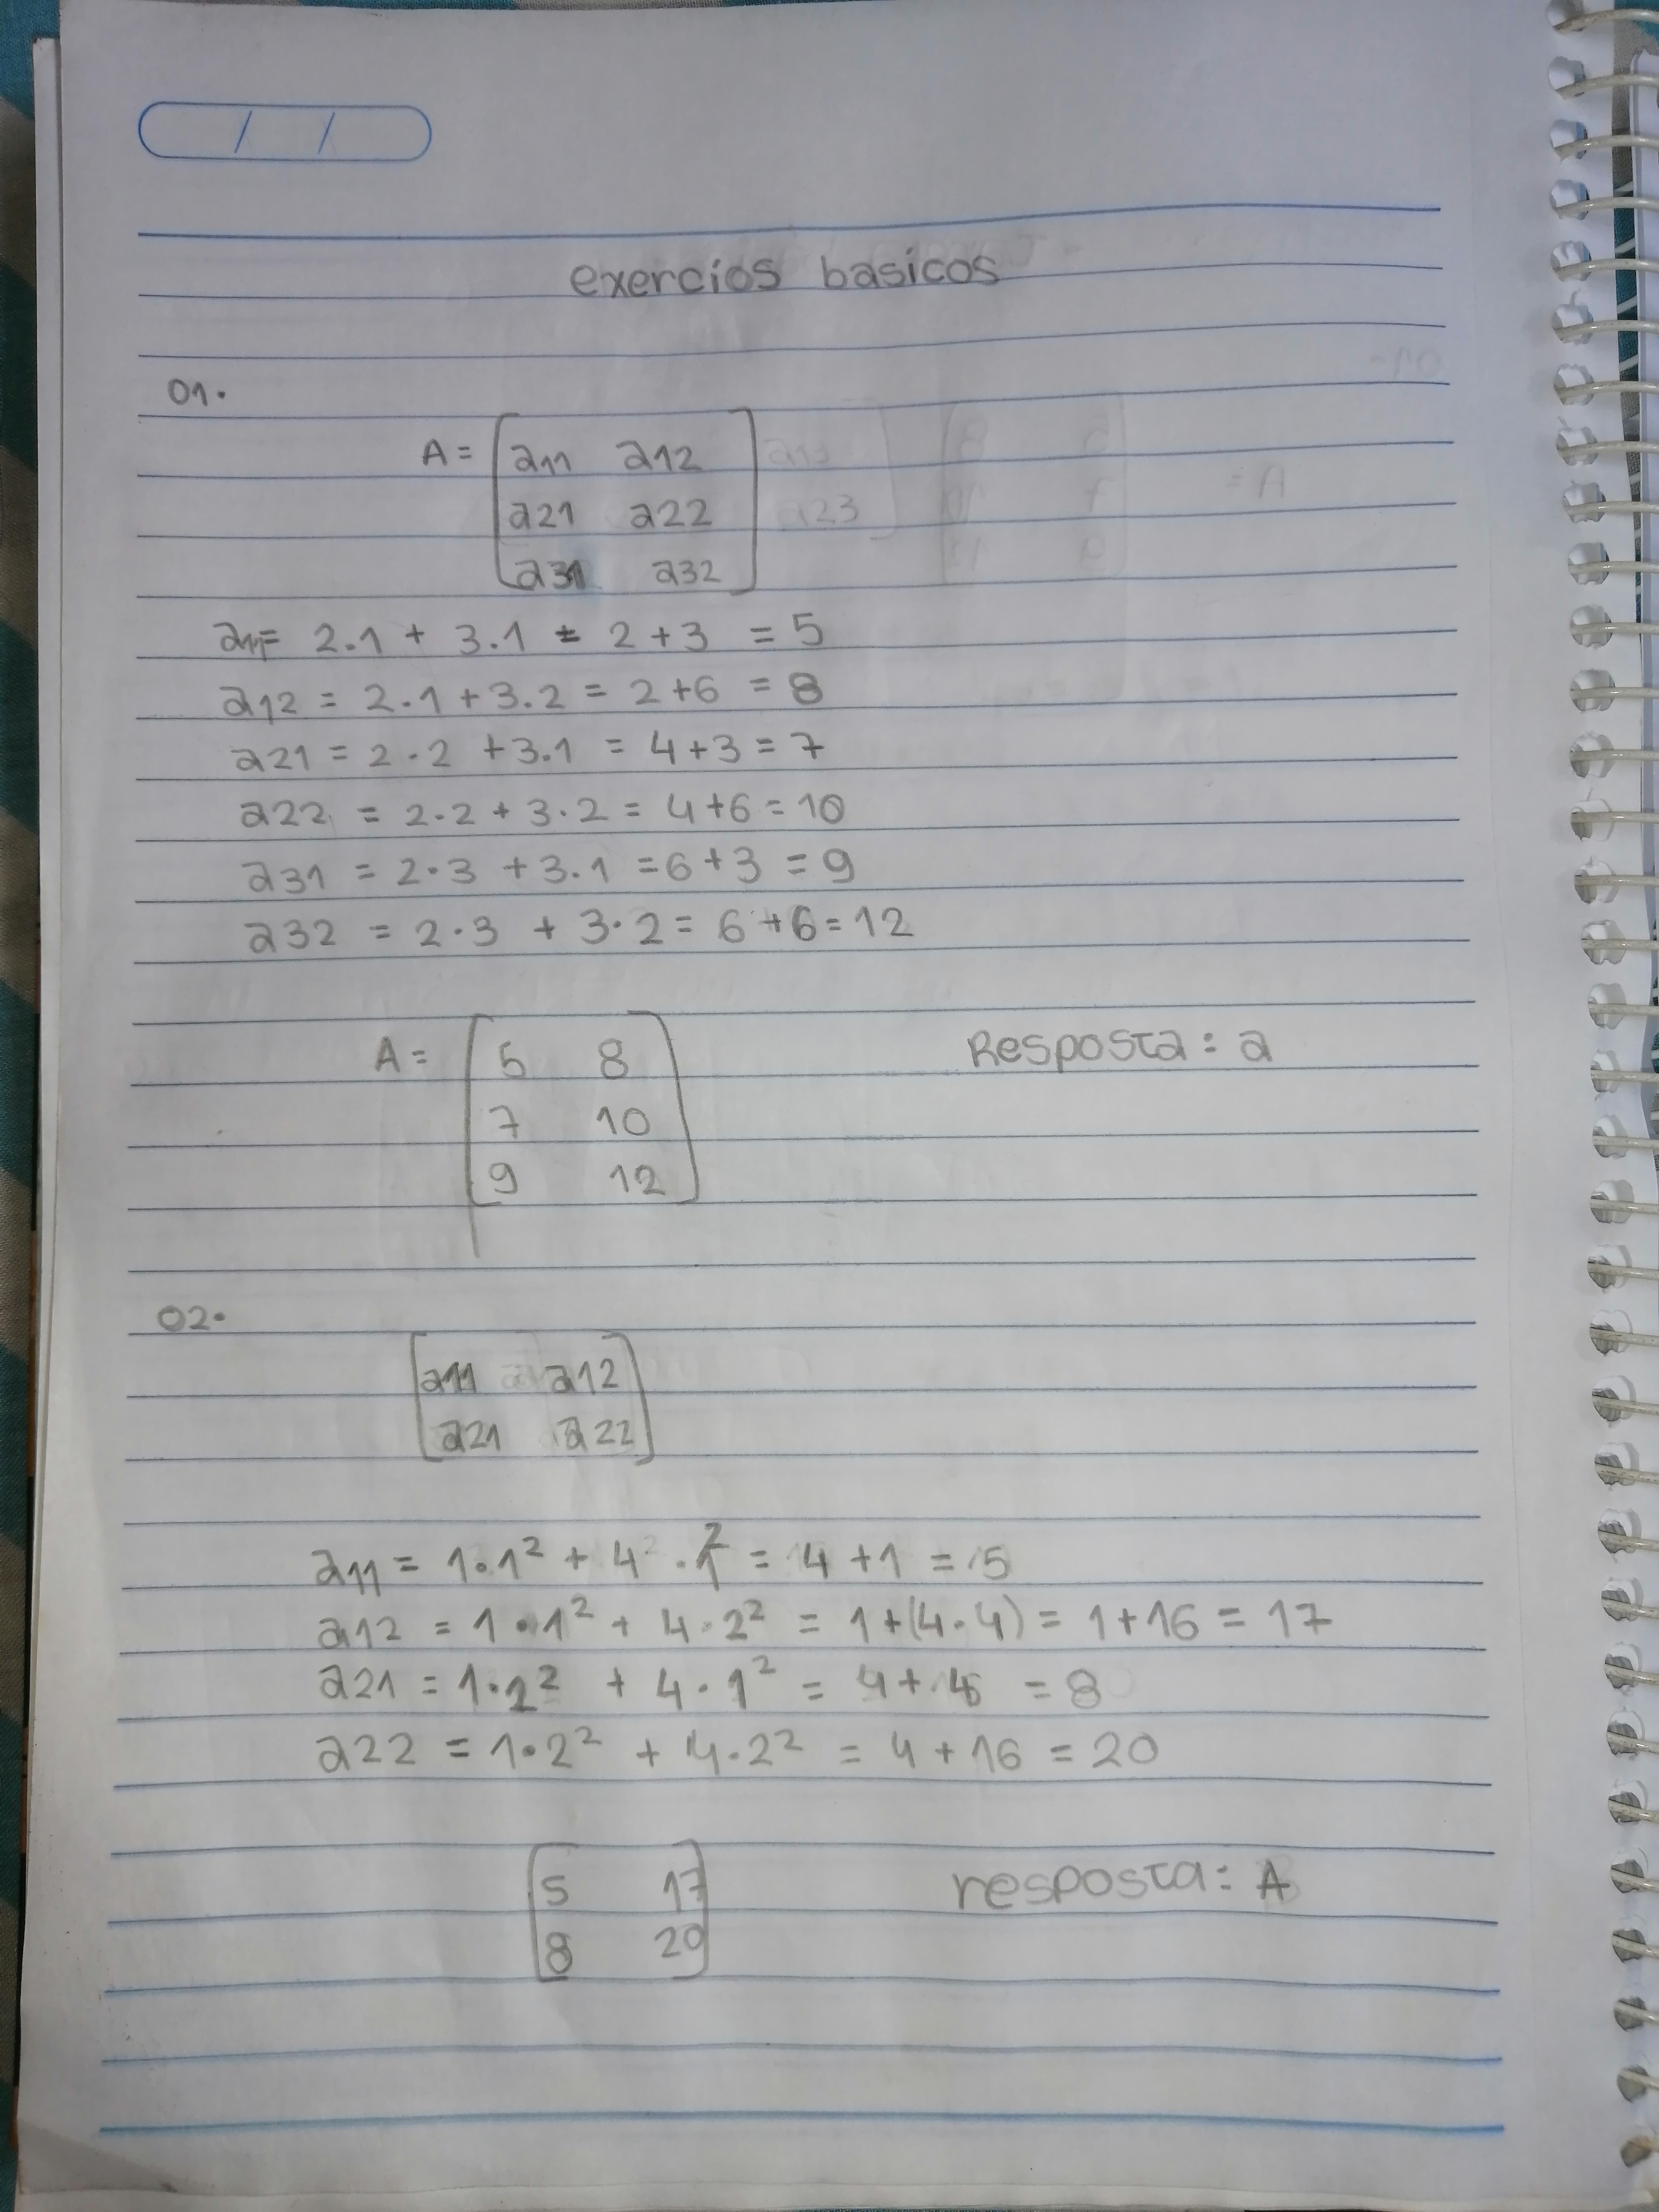 exercios basicos
01.
A = [a11 a12]
[a21 a22] a23
[a31 a32]
a11= 2.1 + 3.1 = 2+3 = 5
a12 = 2.1+3.2 = 2+6 = 8
a21 = 2.2 +3.1 = 4+3=7
a22 = 2.2+3.2 = 4+6=10
a31 = 2.3 +3.1 =6+3 =9
a32 = 2.3 + 3.2= 6+6=12
A= [5 8] Resposta: a
[7 10]
[9 12]
02.
[a11 a12]
[a21 a22]
a11 = 1.1² + 4.1² = 4+1 = 5
a12 = 1.1² + 4.2² = 1+(4.4) = 1+16 = 17
a21 = 1.2² + 4.1² = 4+4 = 8
a22 = 1.2² + 4.2² = 4+16 = 20
[5 17] resposta: A
[8 20]